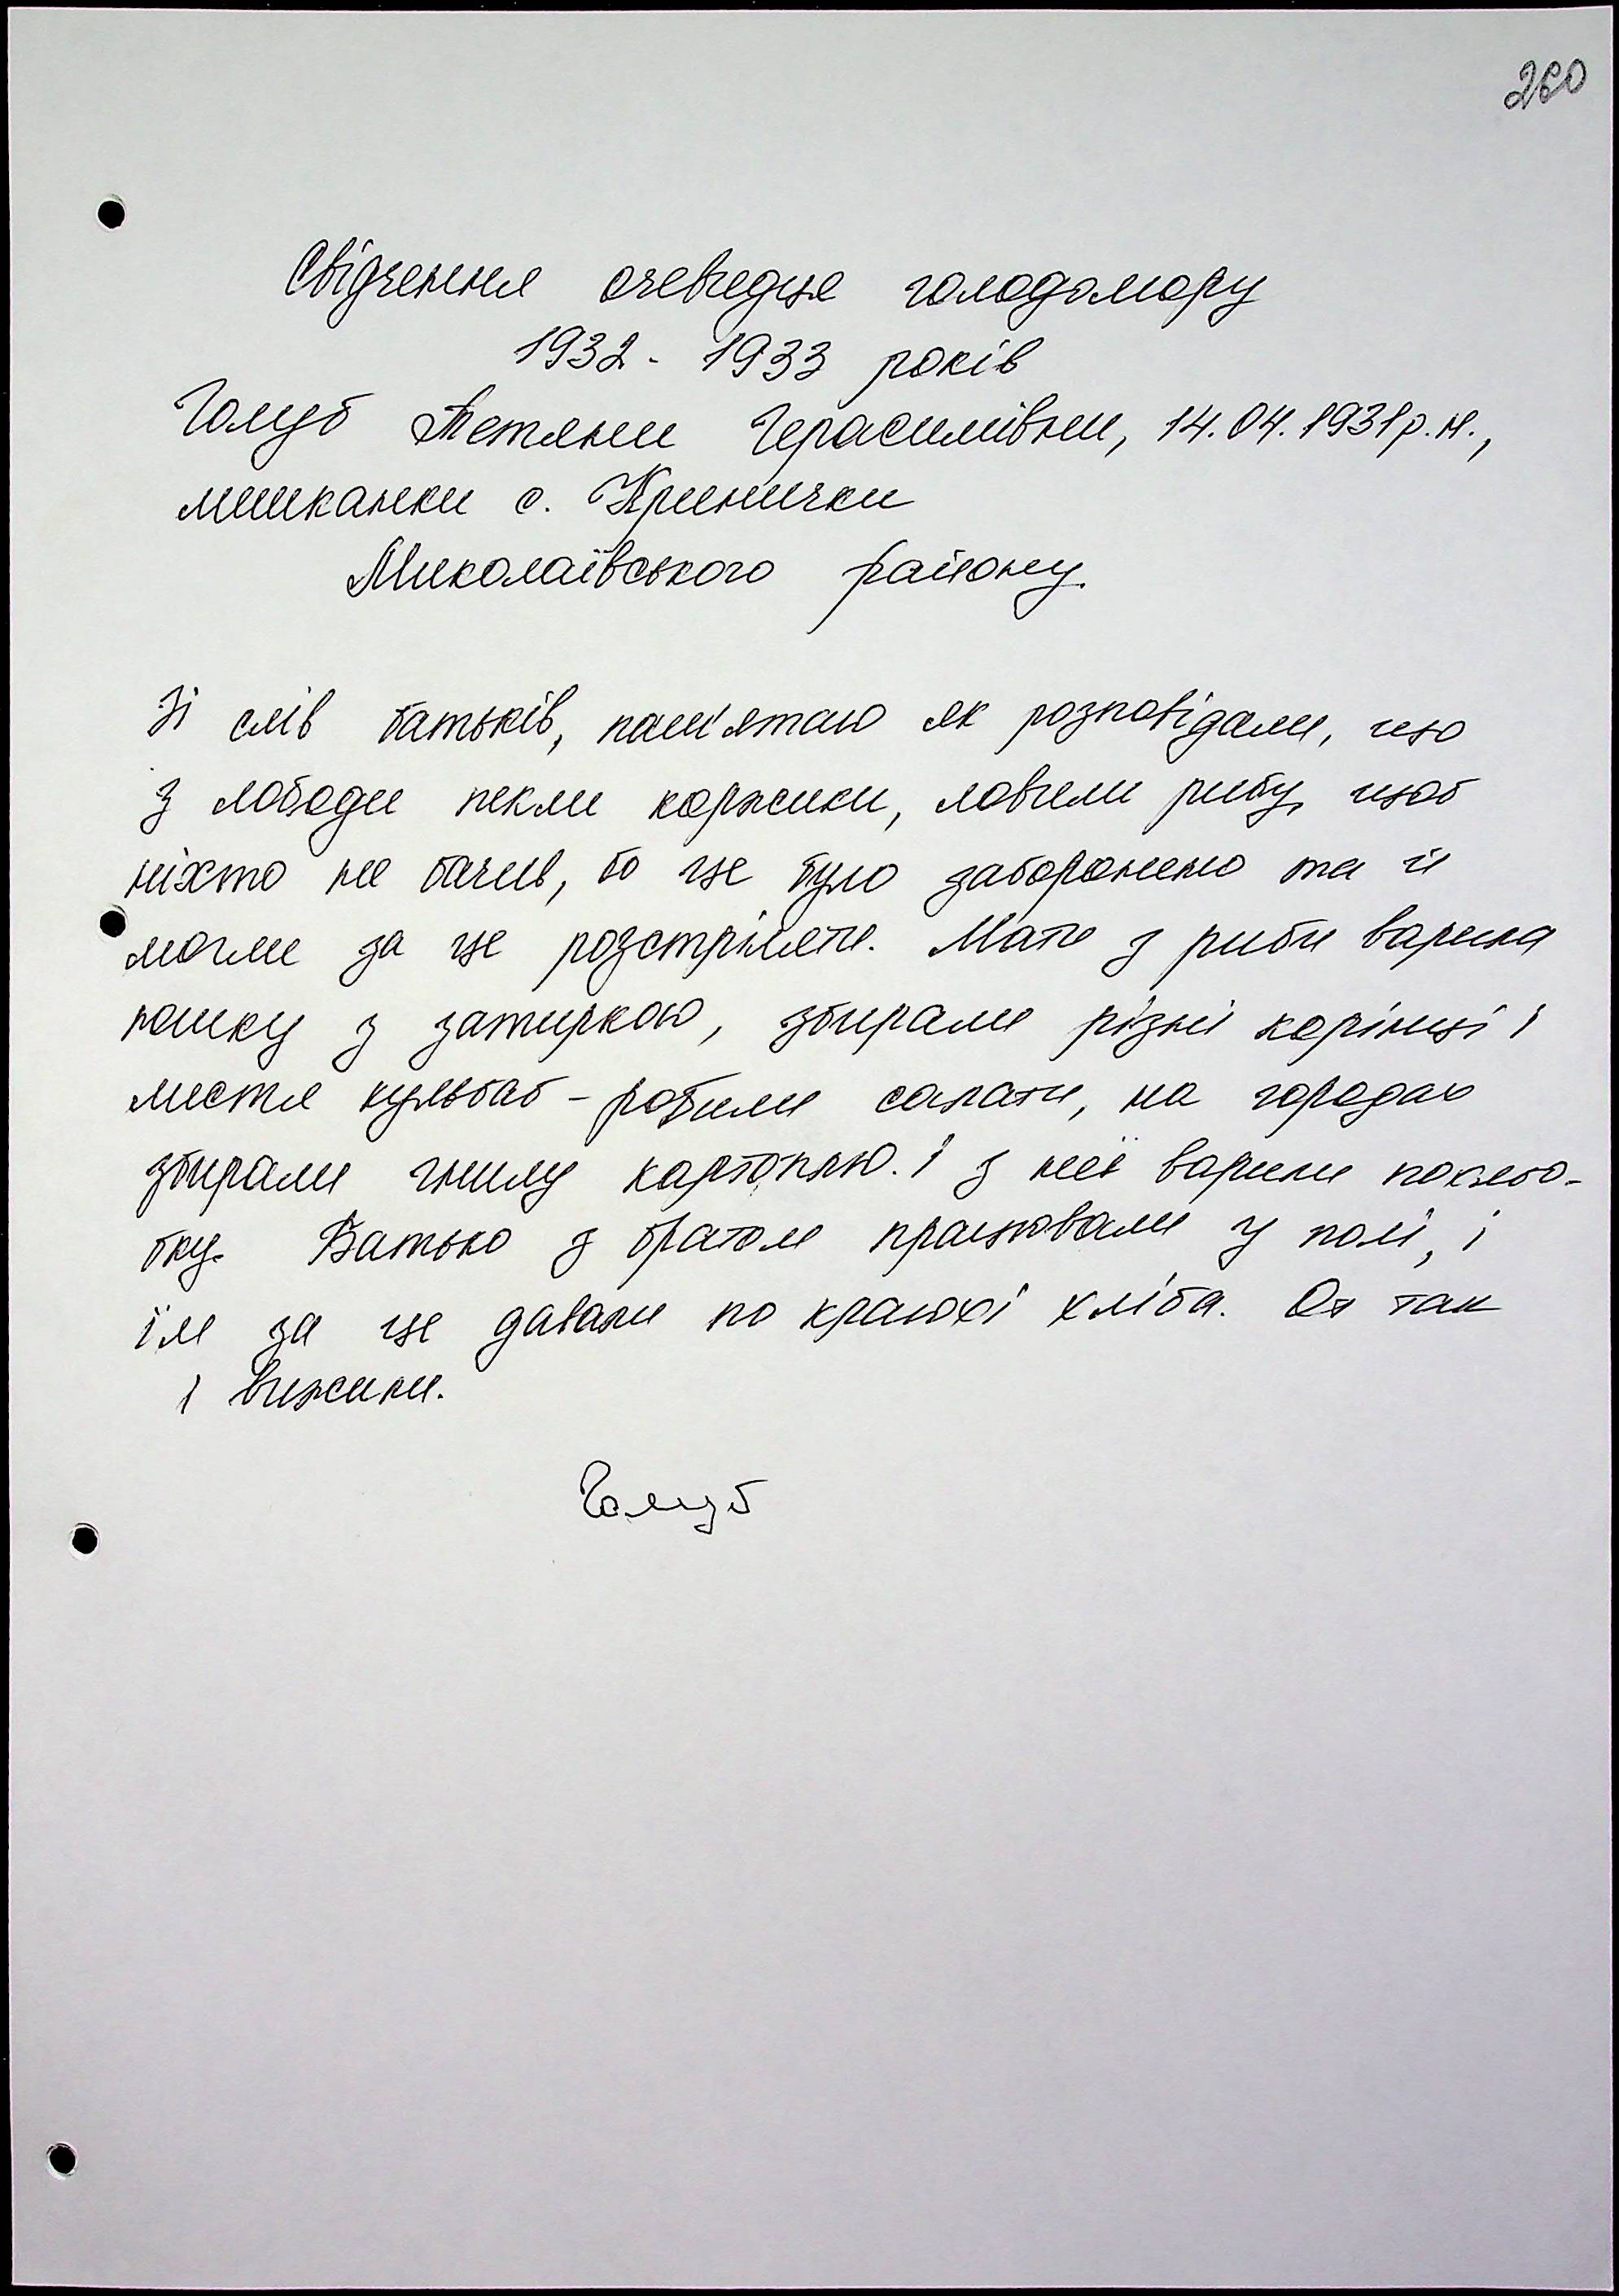 260
Свідчення очевидця голодомору
1932 - 1933 років
Голуб Тетяни Герасимівни, 14.04.1931 р.н.,
мешканки с. Кринички
Миколаївського району.
Зі слів батьків, пам'ятаю як розповідали, що
з лободи пекли коржики, ловили рибу, щоб
ніхто не бачив, бо це було заборонено та й
могли за це розстріляти. Мати з риби варила
юшку з затиркою, збирали різні корінці і
листя кульбаб - робили салати, на городах
збирали гнилу картоплю. І з неї варили похльо-
бку. Батько з братом працювали у полі, і
їм за це давали по краюхі хліба. От так
і вижили.
Голуб